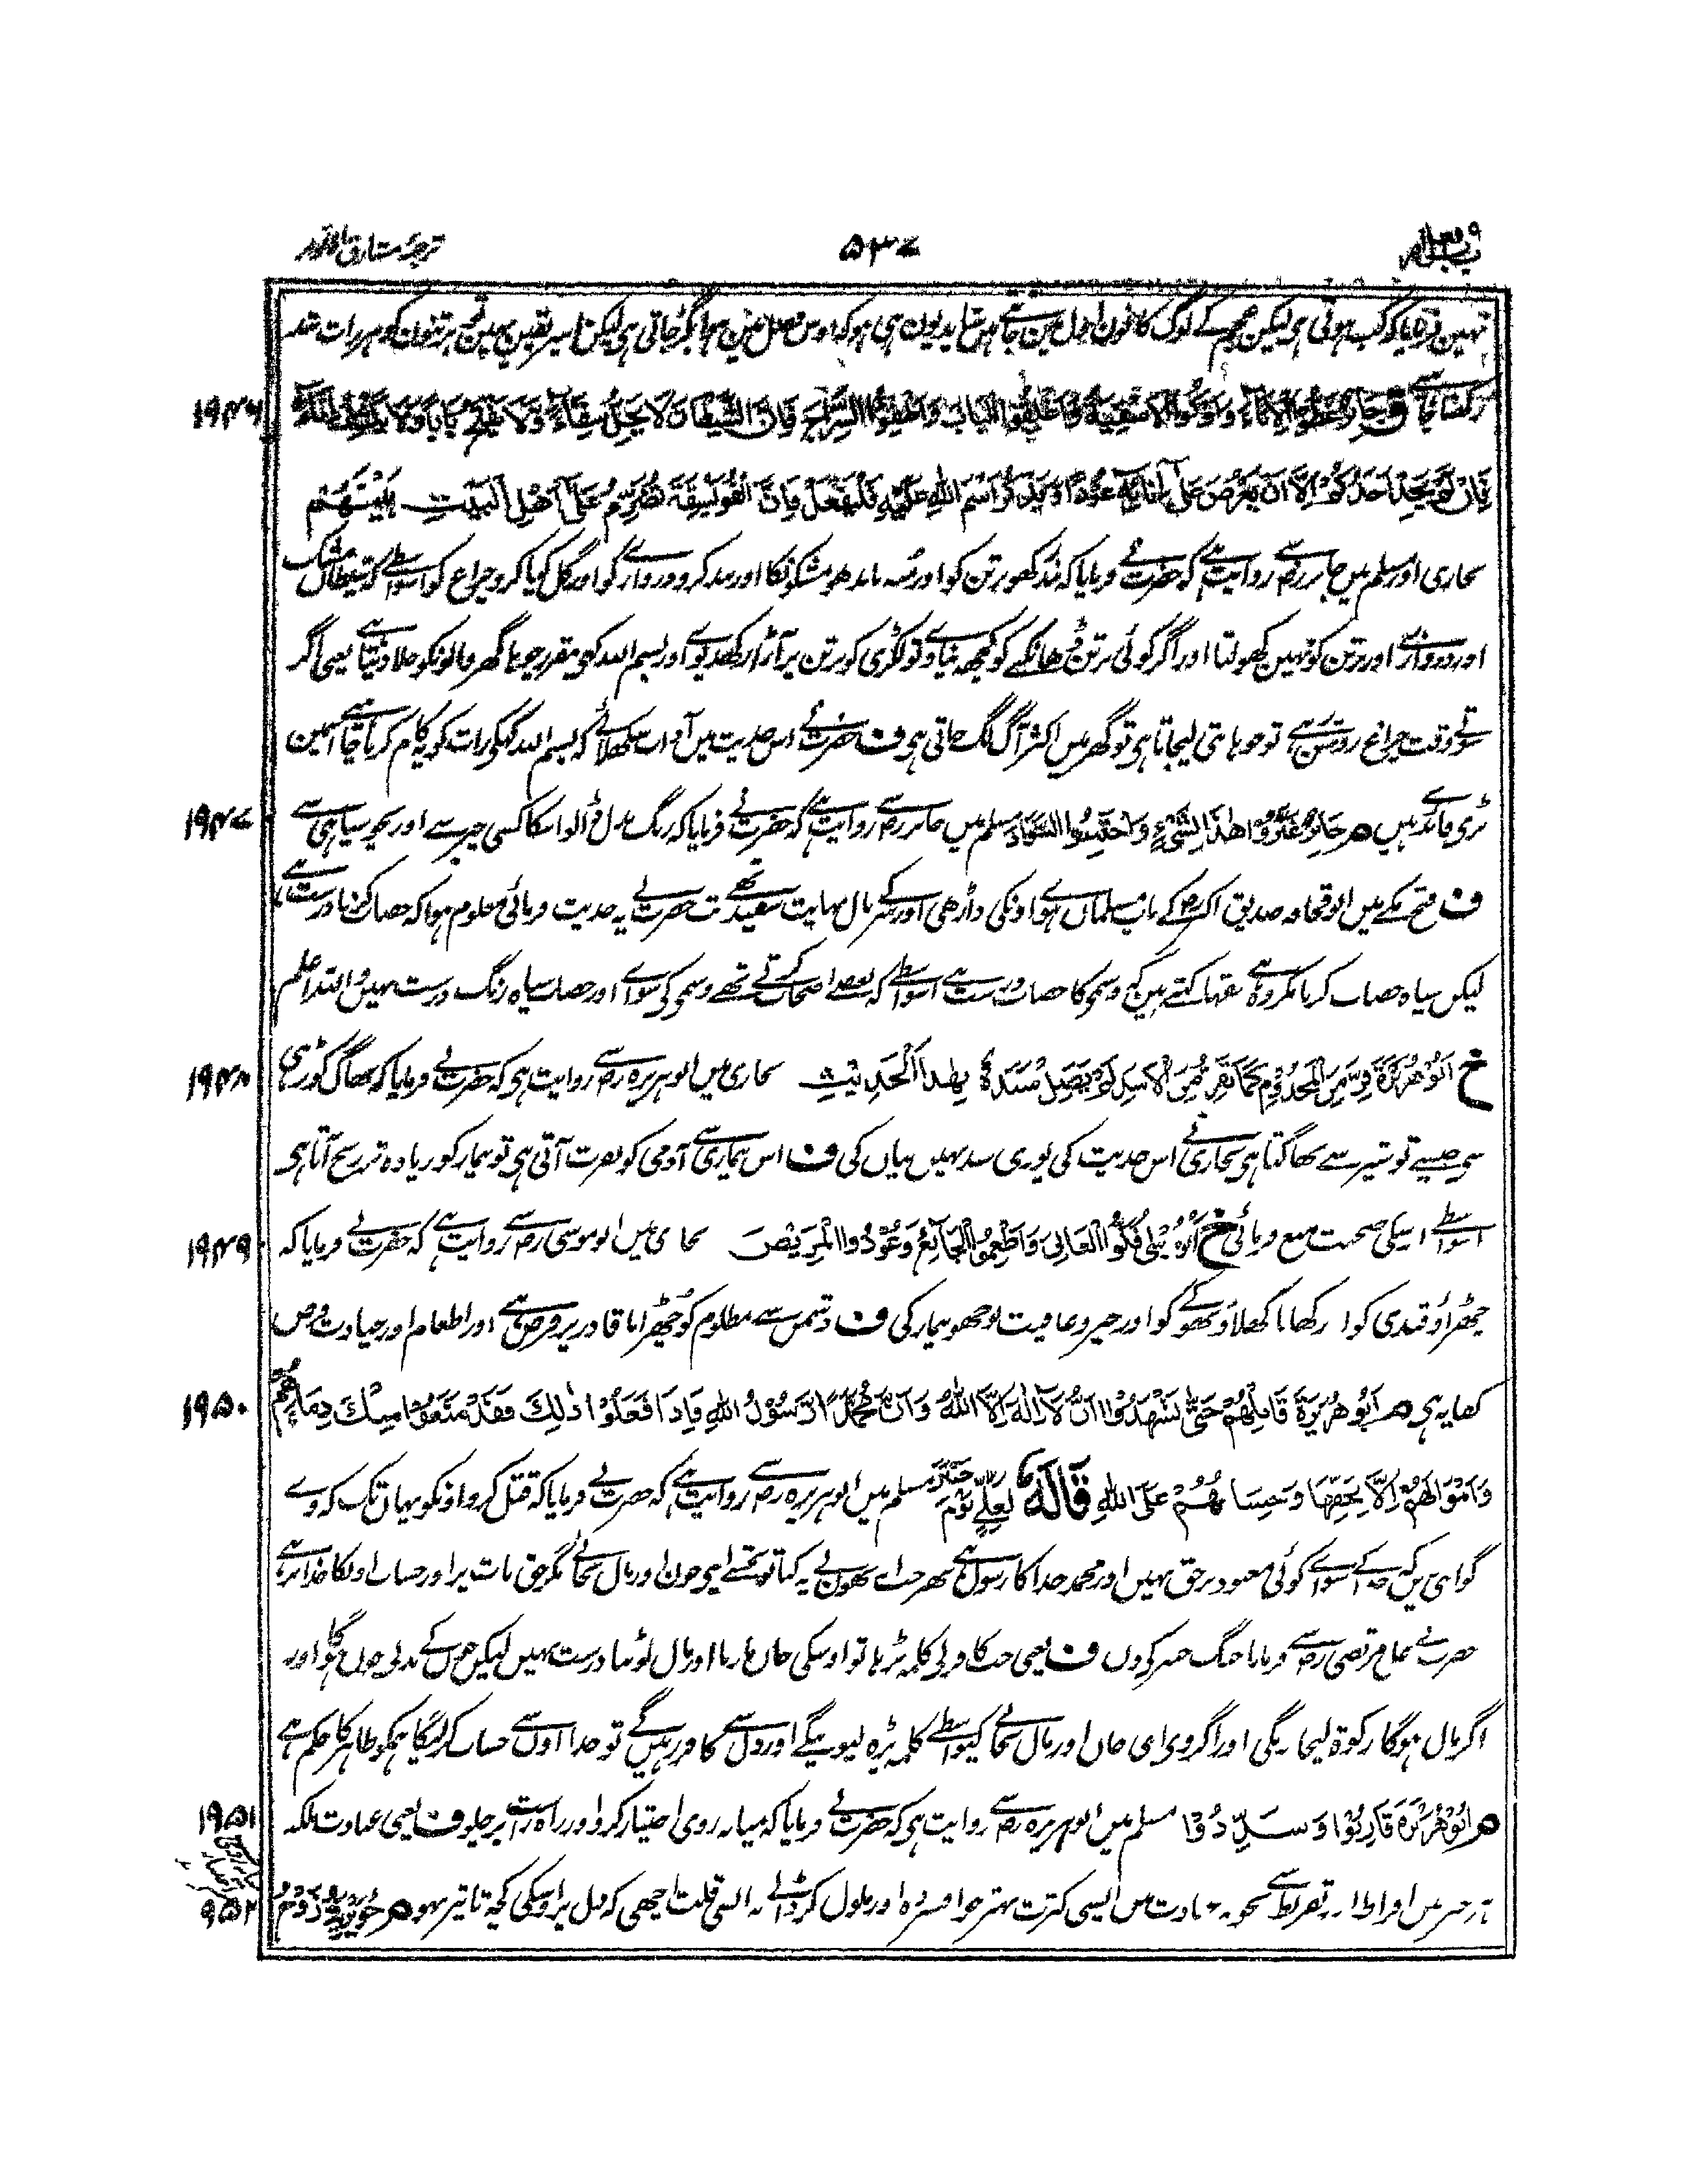 ترجمہ مشارق الانوار ۵۳۷ باب
نہین کہ لوگ کانون اول مین ہو کہ اوس فصل مین ہوا بگڑ جاتی ہی لیکن برتنون کو ہر رات
۱۹۴۶ رکھنا چاہئے ق جابر غطوا الاناء واوکوا الاسقیة واغلقوا الباب واطفئوا السراج فان الشیطان لا یحل سقاء ولا یفتح بابا ولا یکشف اناء
فان لم یجد احدکم الا ان یعرض علی انائه عودا ویذکر اسم الله علیه فلیفعل فان الفویسقة تضرم علی اهل البیت بیتهم
بخاری اور مسلم مین جابر رضہ سے روایت ہے کہ حضرت نے فرمایا کہ بند رکھو برتن کو اور منہ باندھو مشکونکا اور بند کرو دروازے کو اور گل کیا کرو چراغ کو اسواسطے کہ شیطان مشک
اور دروازے اور برتن کو نہین کھولتا اور اگر کوئی برتن ڈھانکنے کو کچھ نپاوے تو لکڑی کو برتن پر آڑا رکھدیوے اور بسم اللہ کہے مقرر چوہا گھر والونکو جلا دیتا ہے یعنی اگر
سوتے وقت چراغ روشن رہے تو چوہا بتی لیجاتا ہی تو گھر مین اکثر آگ لگ جاتی ہی ف حضرت نے اس حدیث مین آداب سکھلائے کہ بسم اللہ کہکر رات کو یہ کام کرنا چاہئے اسمین
۱۹۴۷ بڑی فائدے ہین م جابر غیروا هذا الشیء واجتنبوا السواد مسلم مین جابر رضہ سے روایت ہے کہ حضرت نے فرمایا کہ رنگ بدل ڈالو اسکا کسی چیز سے اور بچو سیاہی سے
ف فتح مکے مین ابو قحافہ صدیق اکبر رضہ کے باپ مسلمان ہوے اونکی داڑھی اور سر کے بال نہایت سفید تھے تب حضرت نے یہ حدیث فرمائی معلوم ہوا کہ خضاب کرنا درست ہے
لیکن سیاہ خضاب کرنا مکروہ ہے فقہا کہتے ہین کہ وسمہ کا خضاب درست ہے اسواسطے کہ بعضے اصحاب کرتے تھے وسمہ کی سواے اور خضاب سیاہ رنگ درست نہین واللہ اعلم
۱۹۴۸ خ ابو هریرة فر من المجذوم کما تفر من الاسد لم یصل سنده بهذا الحدیث بخاری مین ابو ہریرہ رضہ سے روایت ہی کہ حضرت نے فرمایا کہ بھاگ کوڑہی
سے جیسے تو شیر سے بھاگتا ہی بخاری نے اس حدیث کی پوری سند نہین بیان کی ف اس بیماری سے آدمی کو نفرت آتی ہی تو بیمار کو زیادہ تر رنج آتا ہی
۱۹۴۹ اسواسطے اسکی صحبت منع فرمائی خ ابو موسی فکوا العانی واطعموا الجائع وعودوا المریض بخاری مین ابو موسی رضہ سے روایت ہے کہ حضرت نے فرمایا کہ
چھڑاؤ قیدی کو اور کھانا کھلاؤ بھوکے کو اور خیر و عافیت پوچھو بیمار کی ف دشمن سے مظلوم کو چھڑانا قادر پر فرض ہے اور اطعام اور عیادت فرض
۱۹۵۰ کفایہ ہی م ابو هریرة قاتلهم حتی یشهدوا ان لا اله الا الله وان محمدا رسول الله فاذا فعلوا ذلک فقد منعوا منک دماءهم
واموالهم الا بحقها وحسابهم علی الله قاله لعلی یوم خیبر مسلم مین ابو ہریرہ رضہ سے روایت ہے کہ حضرت نے فرمایا کہ قتل کرو اونکو یہان تک کہ وے
گواہی دین کہ خدا کے سواے کوئی معبود برحق نہین اور محمد خدا کا رسول ہے پھر جب انھون نے یہ کہا تو تجھسے اپنی جون اور مال بچائے مگر حق بات پر اور حساب اونکا خدا پر ہے
حضرت نے علی مرتضی رضہ سے فرمایا جنگ خیبر کے دن ف یعنی جب کافر نی کلمہ پڑہا تو اوسکی جان مارنا اور مال لوٹنا درست نہین لیکن خون کے بدلی خون ہوگا اور
اگر مال ہوگا زکوة لیجاویگی اور اگر وی اپنی جان اور مال بچانے کیواسطے کلمہ پڑہ لیوینگے اور دل سے کافر رہینگے تو خدا اون سے حساب کر لیگا ہمکو ظاہر کا حکم ہے
۱۹۵۱ م ابو هریرة قاربوا وسددوا مسلم مین ابو ہریرہ رضہ سے روایت ہی کہ حضرت نے فرمایا کہ میانہ روی اختیار کرو اور راہ راست پر چلو ف یعنی عبادت بلکہ
۹۵۲ ہر چیز مین افراط اور تفریط سے بچو نہ عبادت مین ایسی کثرت بہتر جو افسردہ اور ملول کر ڈالے نہ ایسی قلت اچھی کہ دل پر اوسکی کچھ تاثیر نہو م جویریة